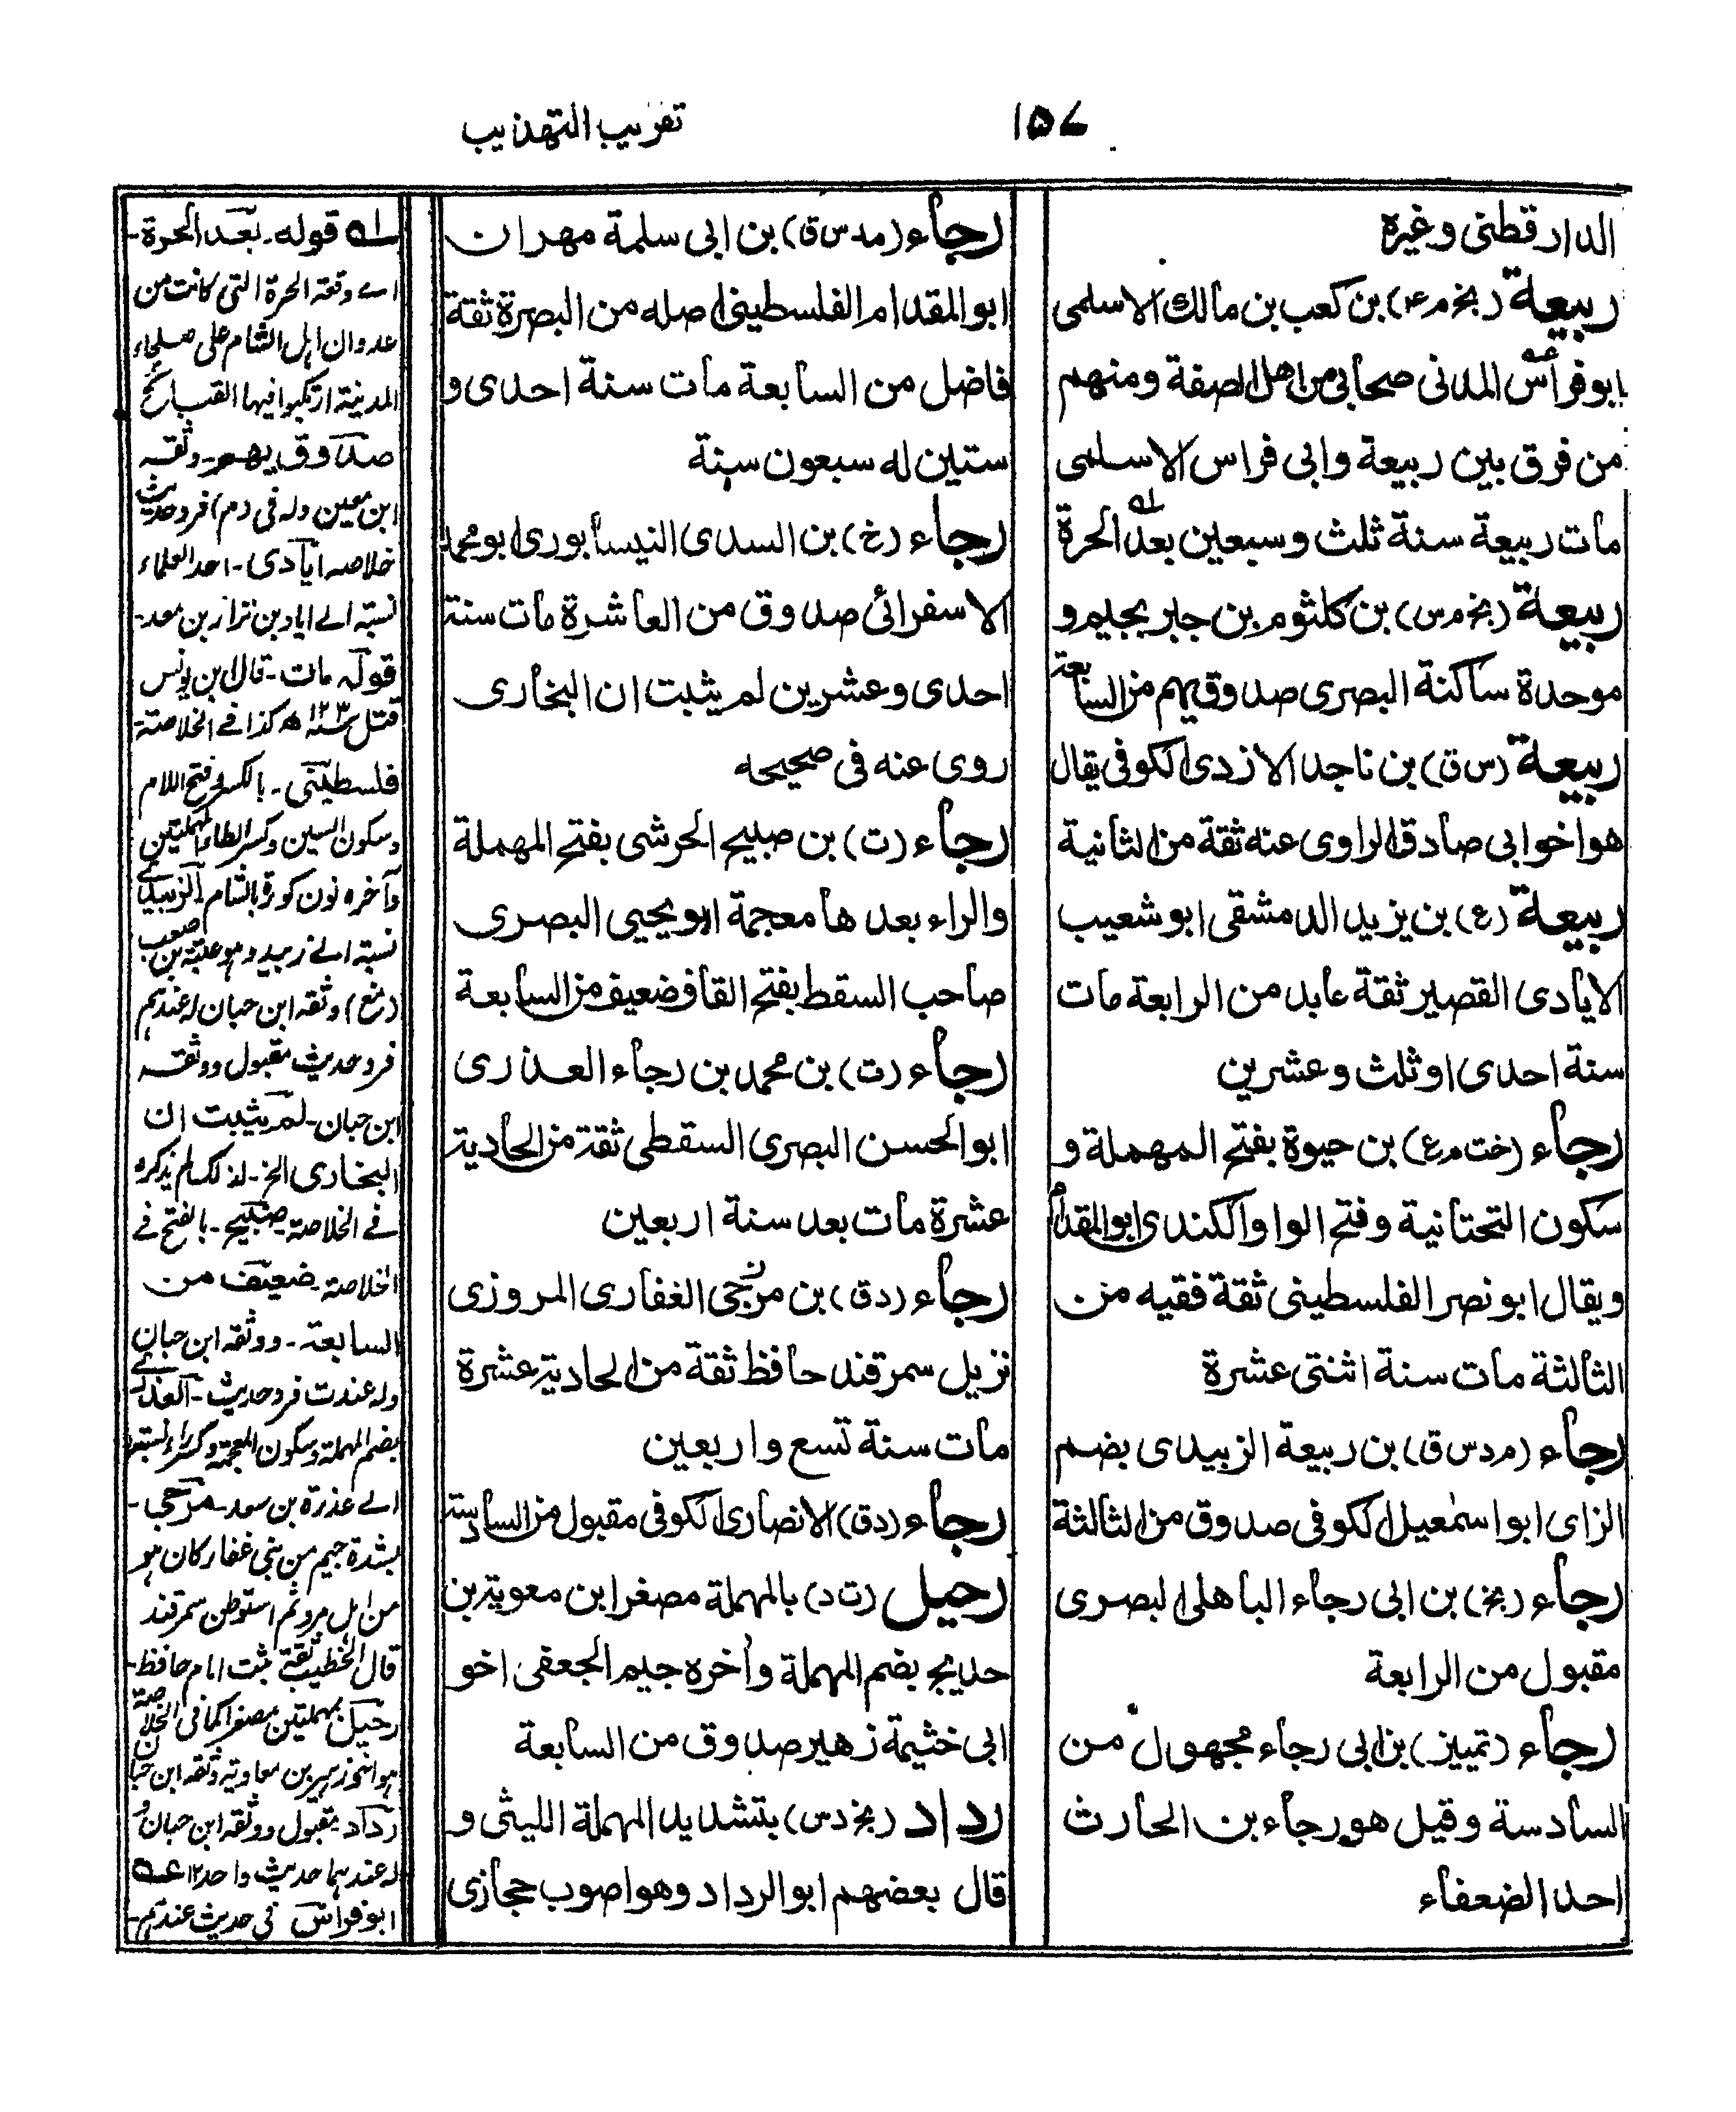 ١٥٧
تقريب التهذيب
الدارقطنى وغيره
ربيعة (بخ م ٤) بن كعب بن مالك الاسلمى
ابو فراس المدنى صحابى من اهل الصفة ومنهم
من فرق بين ربيعة وابى فراس الاسلمى
مات ربيعة سنة ثلث وسبعين بعد الحرة
ربيعة (بخ م س) بن كلثوم بن جبر بجيم و
موحدة ساكنة البصرى صدوق يهم من السابعة
ربيعة (س ق) بن ناجد الازدى الكوفى يقال
هو اخو ابى صادق الراوى عنه ثقة من الثانية
ربيعة (ع) بن يزيد الدمشقى ابو شعيب
الايادى القصير ثقة عابد من الرابعة مات
سنة احدى او ثلث وعشرين
رجاء (خت م ع) بن حيوة بفتح المهملة و
سكون التحتانية وفتح الواو الكندى ابو المقدام
ويقال ابو نصر الفلسطينى ثقة فقيه من
الثالثة مات سنة اثنتى عشرة
رجاء (م د س ق) بن ربيعة الزبيدى بضم
الزاى ابو اسمٰعيل الكوفى صدوق من الثالثة
رجاء (بخ) بن ابى رجاء الباهلى البصرى
مقبول من الرابعة
رجاء (تمييز) بن ابى رجاء مجهول من
السادسة وقيل هو رجاء بن الحارث
احد الضعفاء
رجاء (مد س ق) بن ابى سلمة مهران
ابو المقدام الفلسطينى اصله من البصرة ثقة
فاضل من السابعة مات سنة احدى و
ستين له سبعون سنة
رجاء (خ) بن السدى النيسابورى ابو محمد
الاسفرائى صدوق من العاشرة مات سنة
احدى وعشرين لم يثبت ان البخارى
روى عنه فى صحيحه
رجاء (ت) بن صبيح الحرشى بفتح المهملة
والراء بعدها معجمة ابو يحيى البصرى
صاحب السقط بفتح القاف ضعيف من السابعة
رجاء (ت) بن محمد بن رجاء العذرى
ابو الحسن البصرى السقطى ثقة من الحادية
عشرة مات بعد سنة اربعين
رجاء (د ق) بن مرجى الغفارى المروزى
نزيل سمرقند حافظ ثقة من الحادية عشرة
مات سنة تسع واربعين
رجاء (د ق) الانصارى الكوفى مقبول من السادسة
رحيل (ت د) بالمهملة مصغر ابن معوية بن
حديج بضم المهملة وأخره جيم الجعفى اخو
ابى خثيمة زهير صدوق من السابعة
رداد (بخ د س) بتشديد المهملة الليثى و
قال بعضهم ابو الرداد وهو اصوب حجازى
له قوله - بعد الحرة -
اے وقعة الحرة التى كانت من
عدوان اہل الشام على صلحاء
المدينة ارتكبوا فيها القبائح
صدوق يهم - وثقه
ابن معين وله فى (م) فرد حديث
خلاصه ايادى - احد العلماء
نسبة الے اياد بن نزار بن معد -
قوله مات - قال ابن يونس
قتل سنه ١٢٣ ھ كذا فے الخلاصة -
فلسطينى - بالكسر وفتح اللام
وسكون السين وكسر الطاء المهملتين
وآخره نون كورة بالشام الزبيدے
نسبة الے زبيد وہو منبه بن صعب
(بخ) وثقه ابن حبان له عندہم
فرد حديث مقبول ووثقه
ابن حبان - لم يثبت ان
البخارى الخ - لذلك لم يذكره
فے الخلاصة صبيح - بالفتح فے
الخلاصة - ضعيف من
السابعة - ووثقه ابن حبان
وله عند ت فرد حديث - العذرے
بضم المهملة وسكون المعجمة وكسر راء نسبة
الے عذرة بن سعد - مرجى -
بشدة جيم من بنى غفار كان ہو
من اہل مرو ثم استوطن سمرقند
قال الخطيب ثقة ثبت امام حافظ -
رحيل بمهملتين مصغرا كما فى الخلاصة
ہو اخو زہير بن معاوية وثقه ابن حبان
رداد مقبول ووثقه ابن حبان و
له عندہما حديث واحد ١٢ عه
ابو فراس فى حديث عندہم -